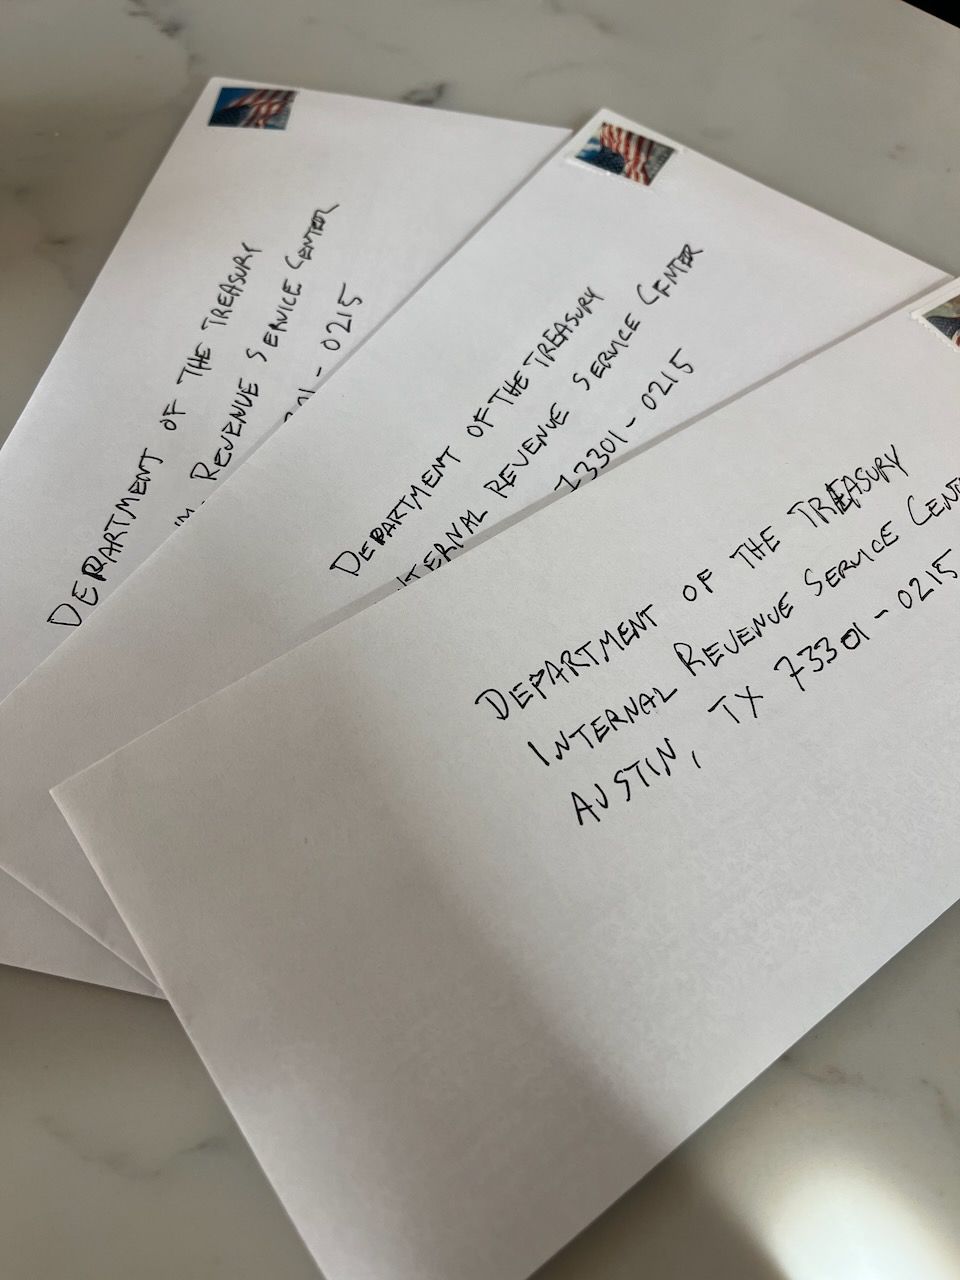 DEPARTMENT OF THE TREASURY
REVENUE SERVICE CENTER
0215
DEPARTMENT OF THE TREASURY
INTERNAL REVENUE SERVICE CENTER
73301-0215
DEPARTMENT OF THE TREASURY
INTERNAL REVENUE SERVICE CENT
AUSTIN, TX 73301-0215